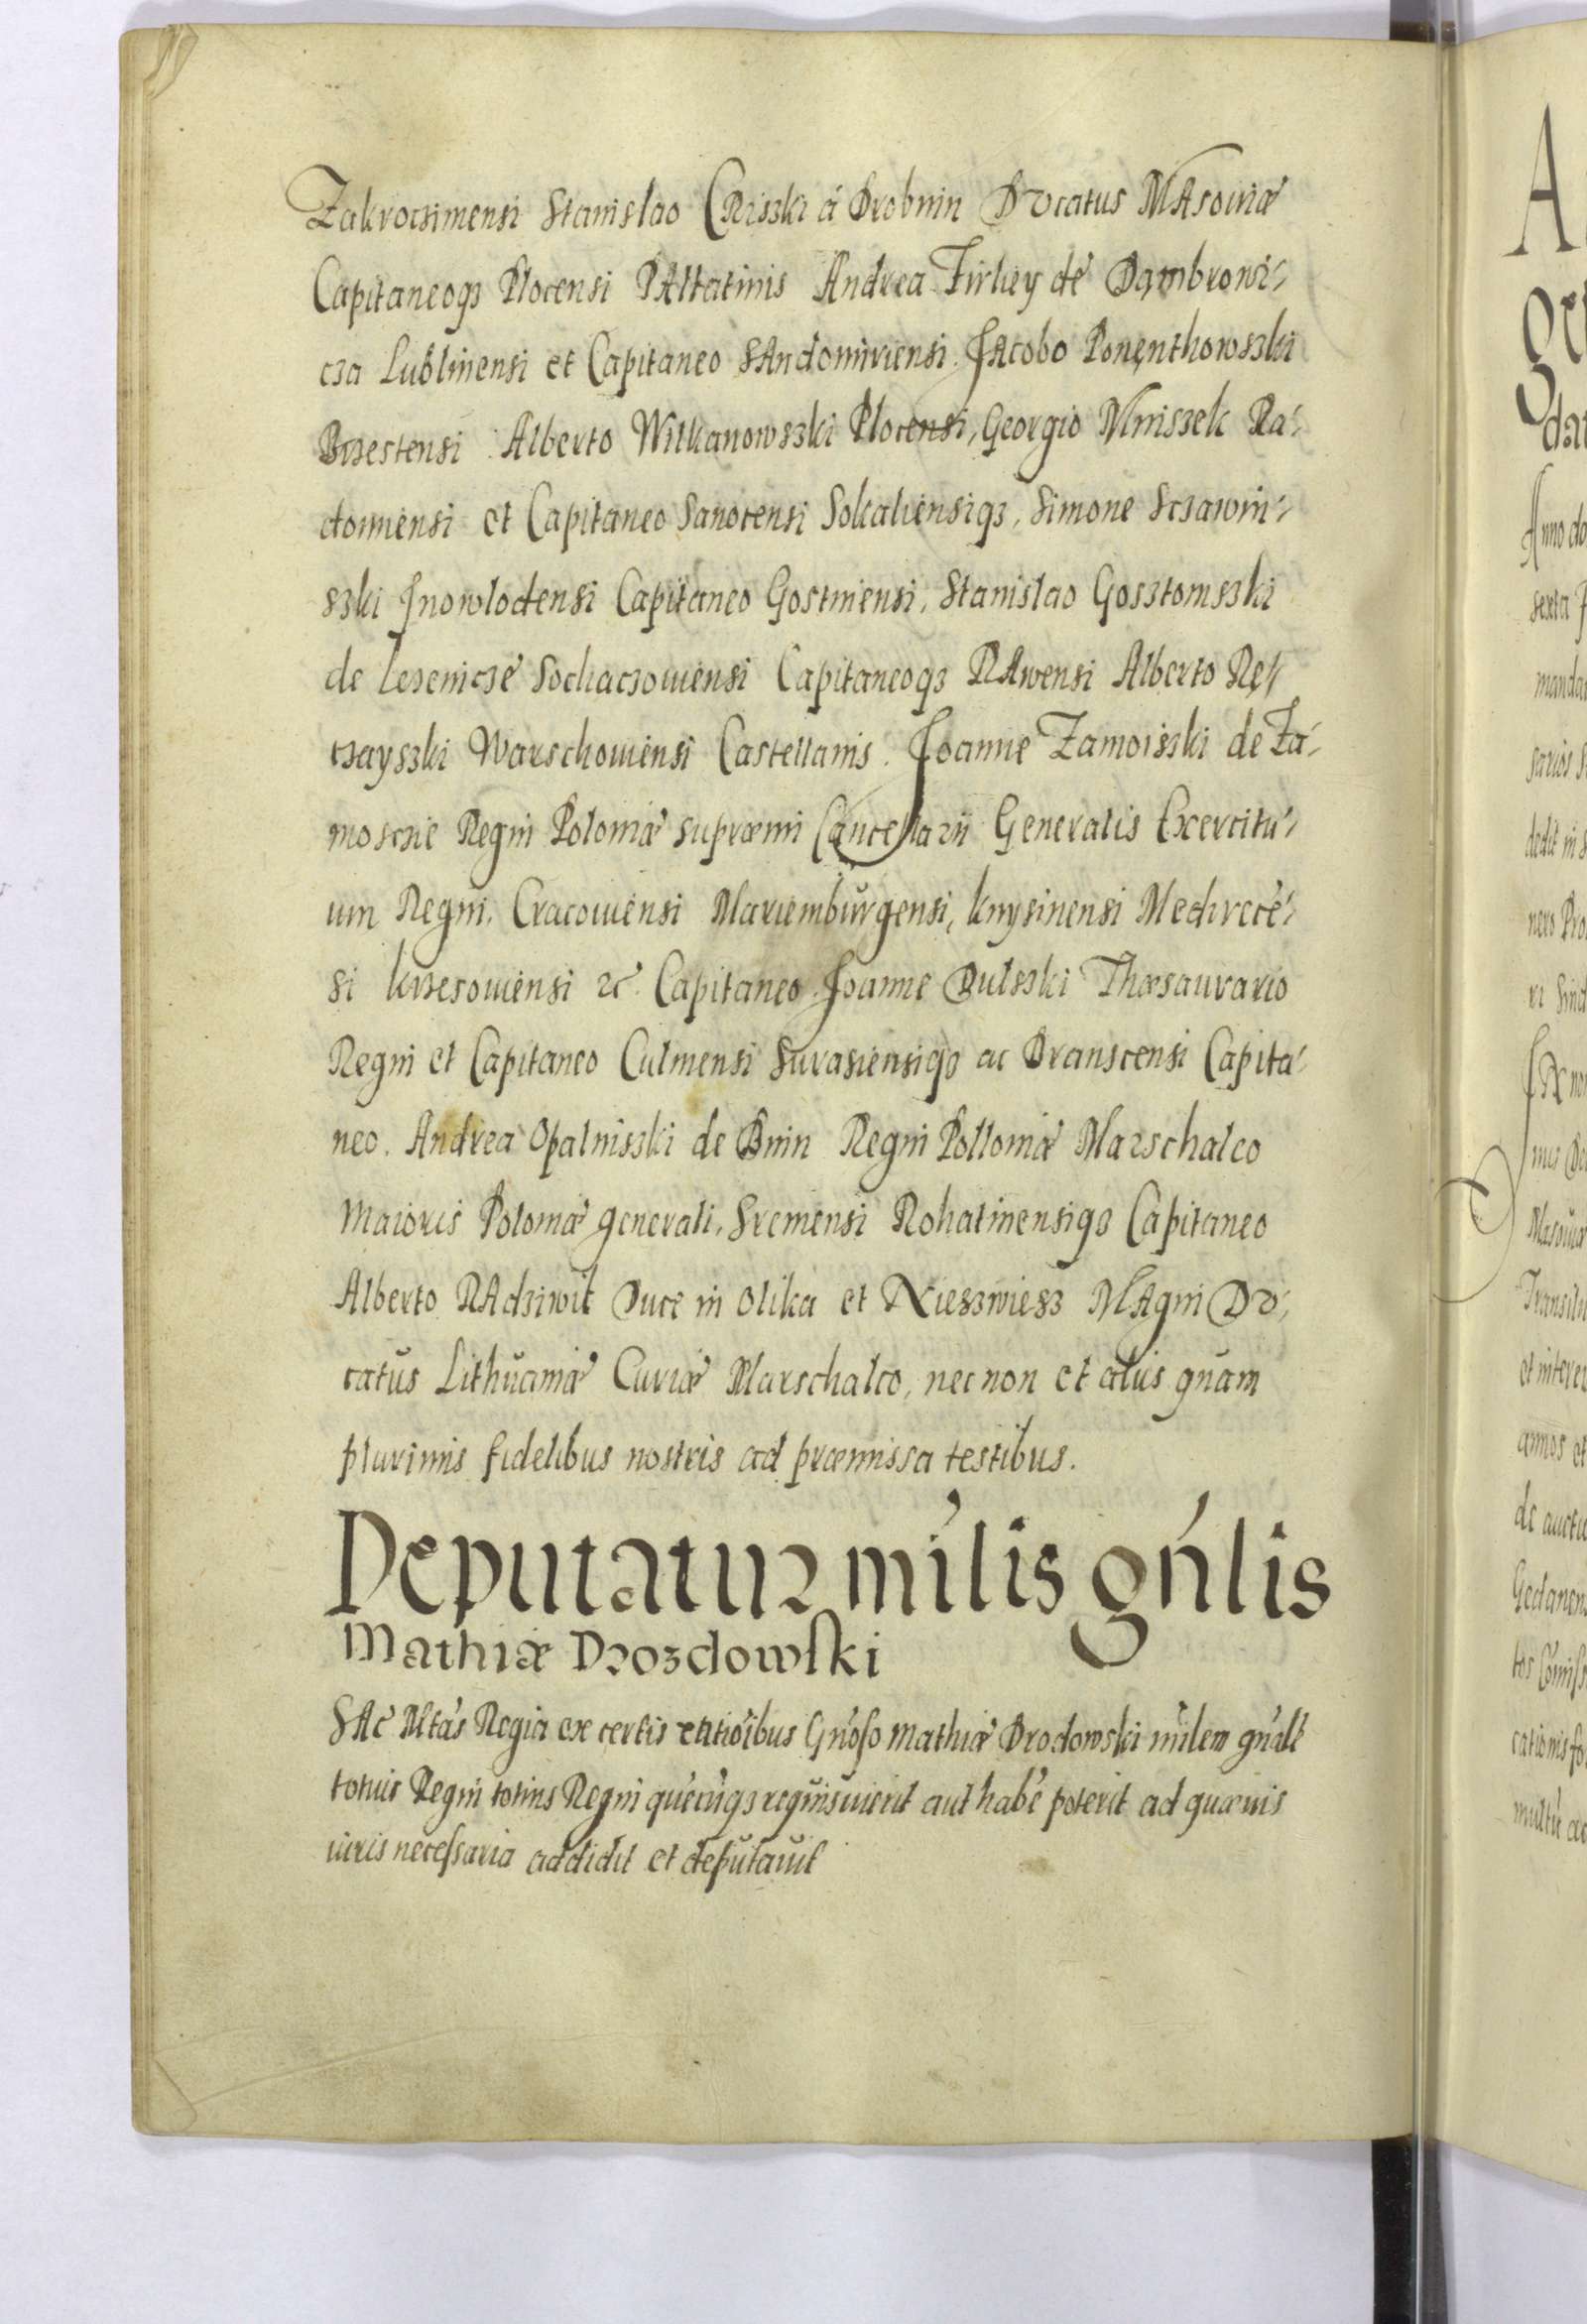 Zakroczimensi Stanislao Criszki á Drobnin Ducatus MAsouiæ
Capitaneoqꝫ Plocensi PAltatinis Andrea Firliey de Dąmbrowi-
cza Lublinensi et Capitaneo SAndomiriensi. JAcobo Ponęnthowszki
Brzestensi Alberto Wilkanowszki Plocensi, Georgio Mniszek Ra-
domiensi et Capitaneo Sanocensi Sokaliensiqꝫ, Simone Sczawin-
szki Jnowlodensi Capitaneo Gostinensi, Stanislao Gosztomszki
de Lezenicze Sochaczouiensi Capitaneoqꝫ RAwensi Alberto Ręt
czayszki Warschouiensi Castellanis. Joanne Zamoiszki de Za-
mosczie Regni Poloniæ supræmi Cancellarii Generalis Exercitu-
um Regni. Cracouiensi Mariemburgensi, Knysinensi Medirecē-
si Krzesouiensi ꝛc Capitaneo. Joanne Dulszki Thæsaurario
Regni et Capitaneo Culmensi Surasiensiqꝫ ac Branscensi Capita-
neo. Andrea Opalniszki de Bnin Regni Polloniæ Marschalco
Maioris Poloniæ generali. Sremensi Rohatinensiqꝫ Capitaneo
Alberto RAdziwil Duce in Olika et Nieszwiesz MAgni Du-
catus Lithuaniæ Curiæ Marschalco, nec non et aliis quam
plurimis fidelibus nostris ad præmissa testibus.
Deputatur mi'lis gn'lis
Mathiæ Drozdowski
SAc Mta's Regia ex certis Gn'oso Mathiæ Drodowski mi'lem gn'alē
totius Regni totius Regni que'cu'qꝫ requisiuierit aut habe' poterit ad quæuis
iuris necessaria addidit et deputauit